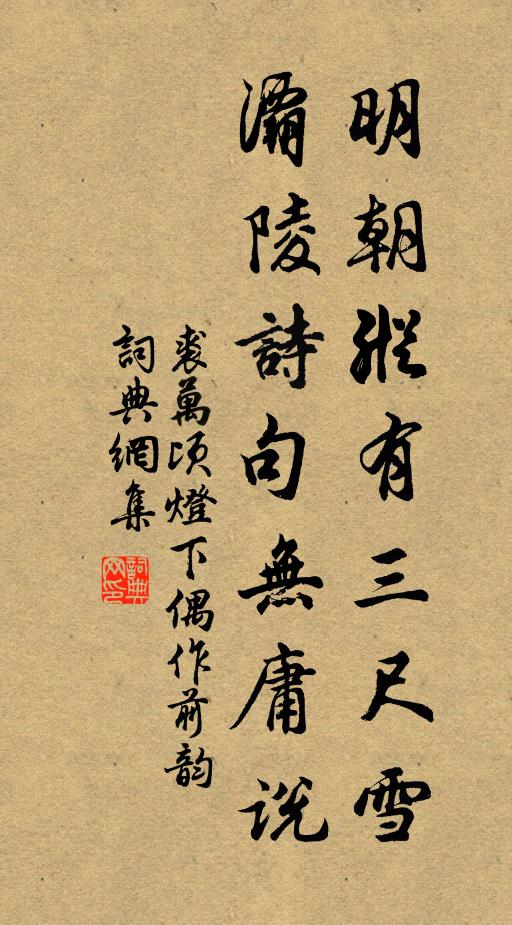 明朝縱有三尺雪
灞陵詩句無庸說
裘萬頃燈下偶作前韵
詞典網集
詞典網印